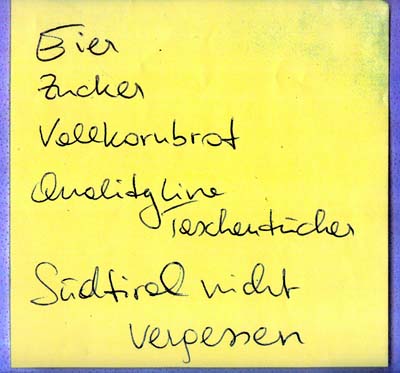 Eier
Zucker
Vollkornbrot
Qualityline
Taschentücher
Südtirol nicht
vergessen